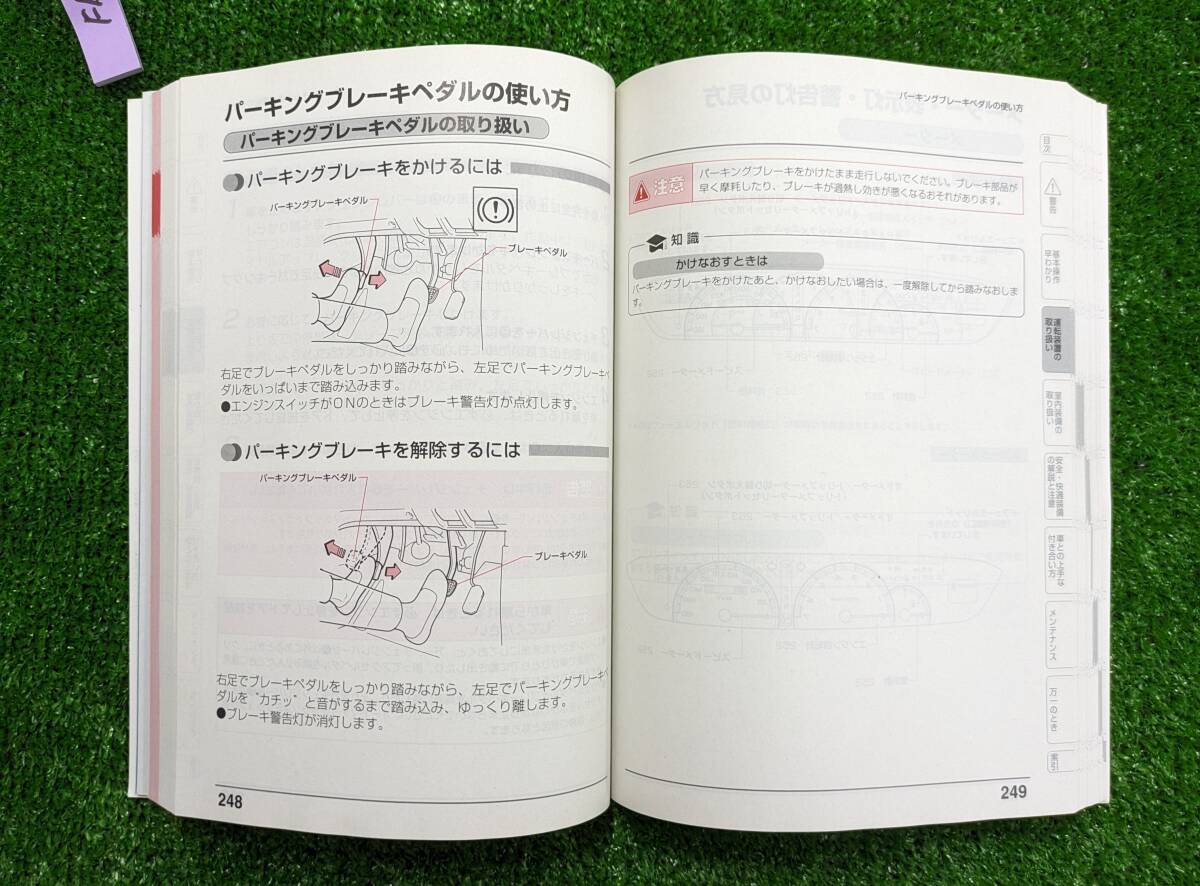 パーキングブレーキペダルの使い方
パーキングブレーキペダルの取り扱い
パーキングブレーキをかけるには
パーキングブレーキペダル
ブレーキペダル
右足でブレーキペダルをしっかり踏みながら、左足でパーキングブレーキペ
ダルをいっぱいまで踏み込みます。
●エンジンスイッチがONのときはブレーキ警告灯が点灯します。
パーキングブレーキを解除するには
パーキングブレーキペダル
ブレーキペダル
右足でブレーキペダルをしっかり踏みながら、左足でパーキングブレーキペ
ダルを“カチッ”と音がするまで踏み込み、ゆっくり離します。
●ブレーキ警告灯が消灯します。
248
パーキングブレーキペダルの使い方
注意
パーキングブレーキをかけたまま走行しないでください。ブレーキ部品が
早く摩耗したり、ブレーキが過熱し効きが悪くなるおそれがあります。
知識
かけなおすときは
パーキングブレーキをかけたあと、かけなおしたい場合は、一度解除してから踏みなおしま
す。
目次
警告
基本操作
早わかり
運転装置の
取り扱い
室内装備の
取り扱い
安全・快適装備
の解説と注意
車との上手な
付き合い方
メンテナンス
万一のとき
索引
249